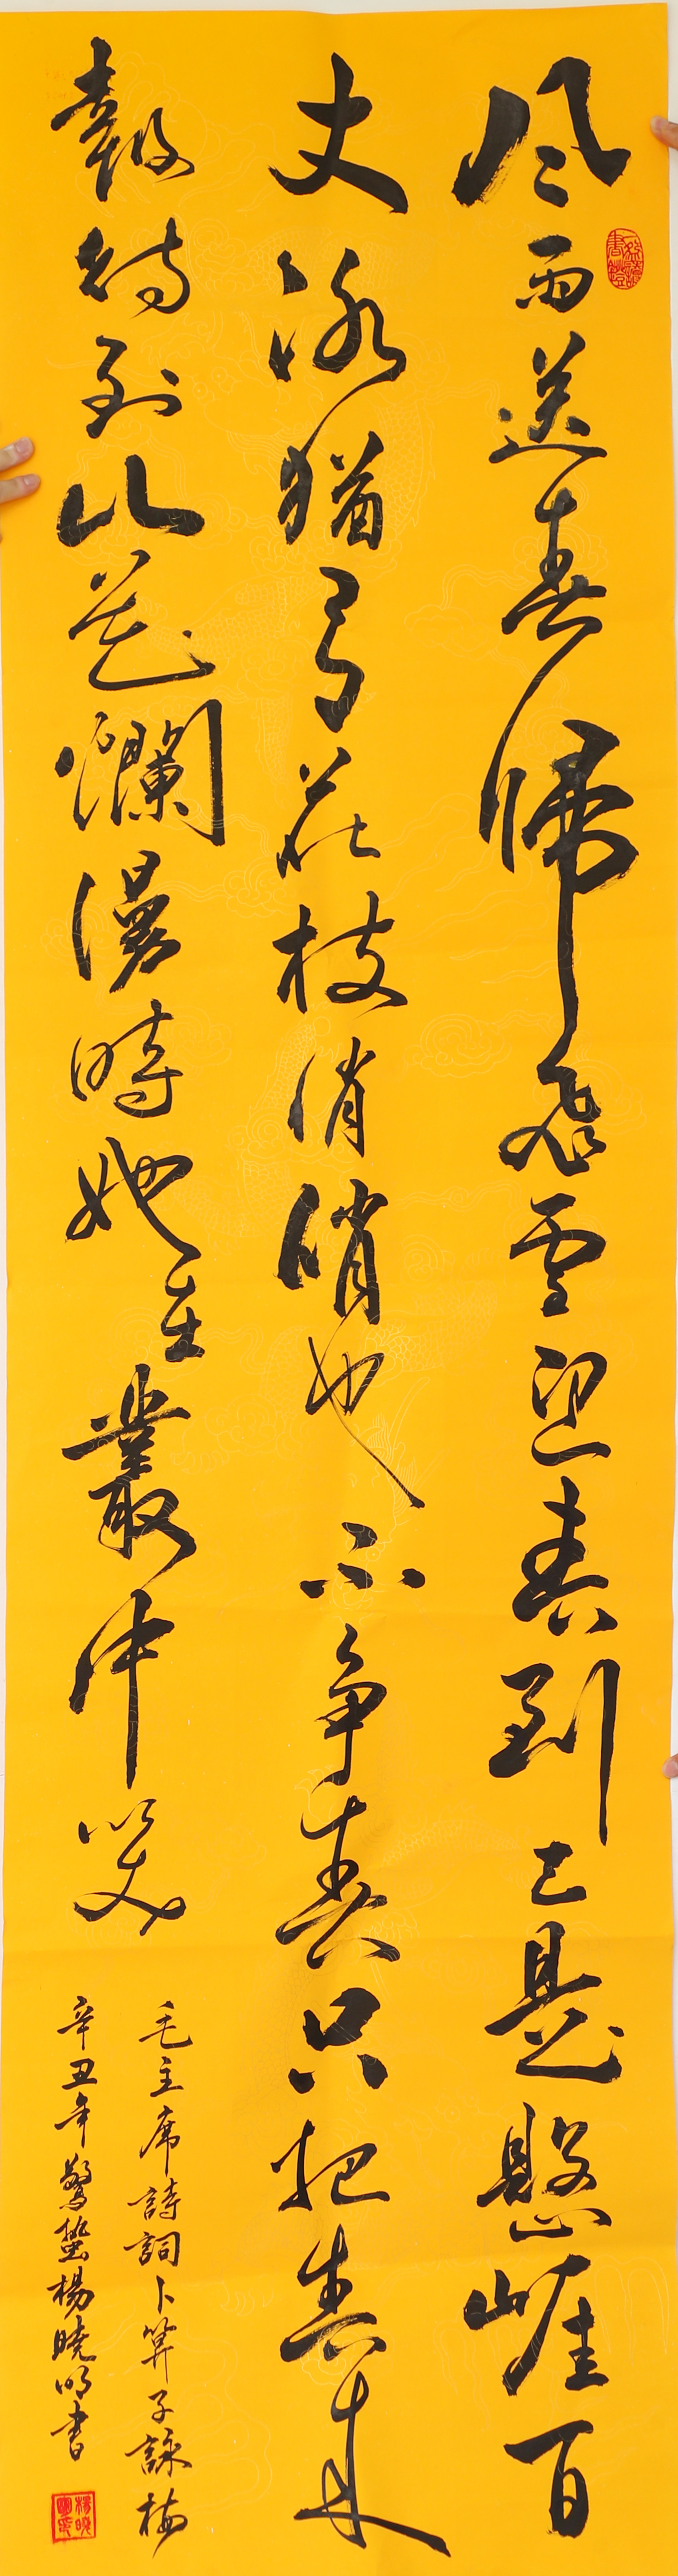 风雨送春歸飛雪迎春到已是懸崖百
丈冰猶有花枝俏俏也不争春只把春来
報待到山花爛漫時她在叢中笑
毛主席詩詞卜算子詠梅
辛丑年驚蟄楊曉明書